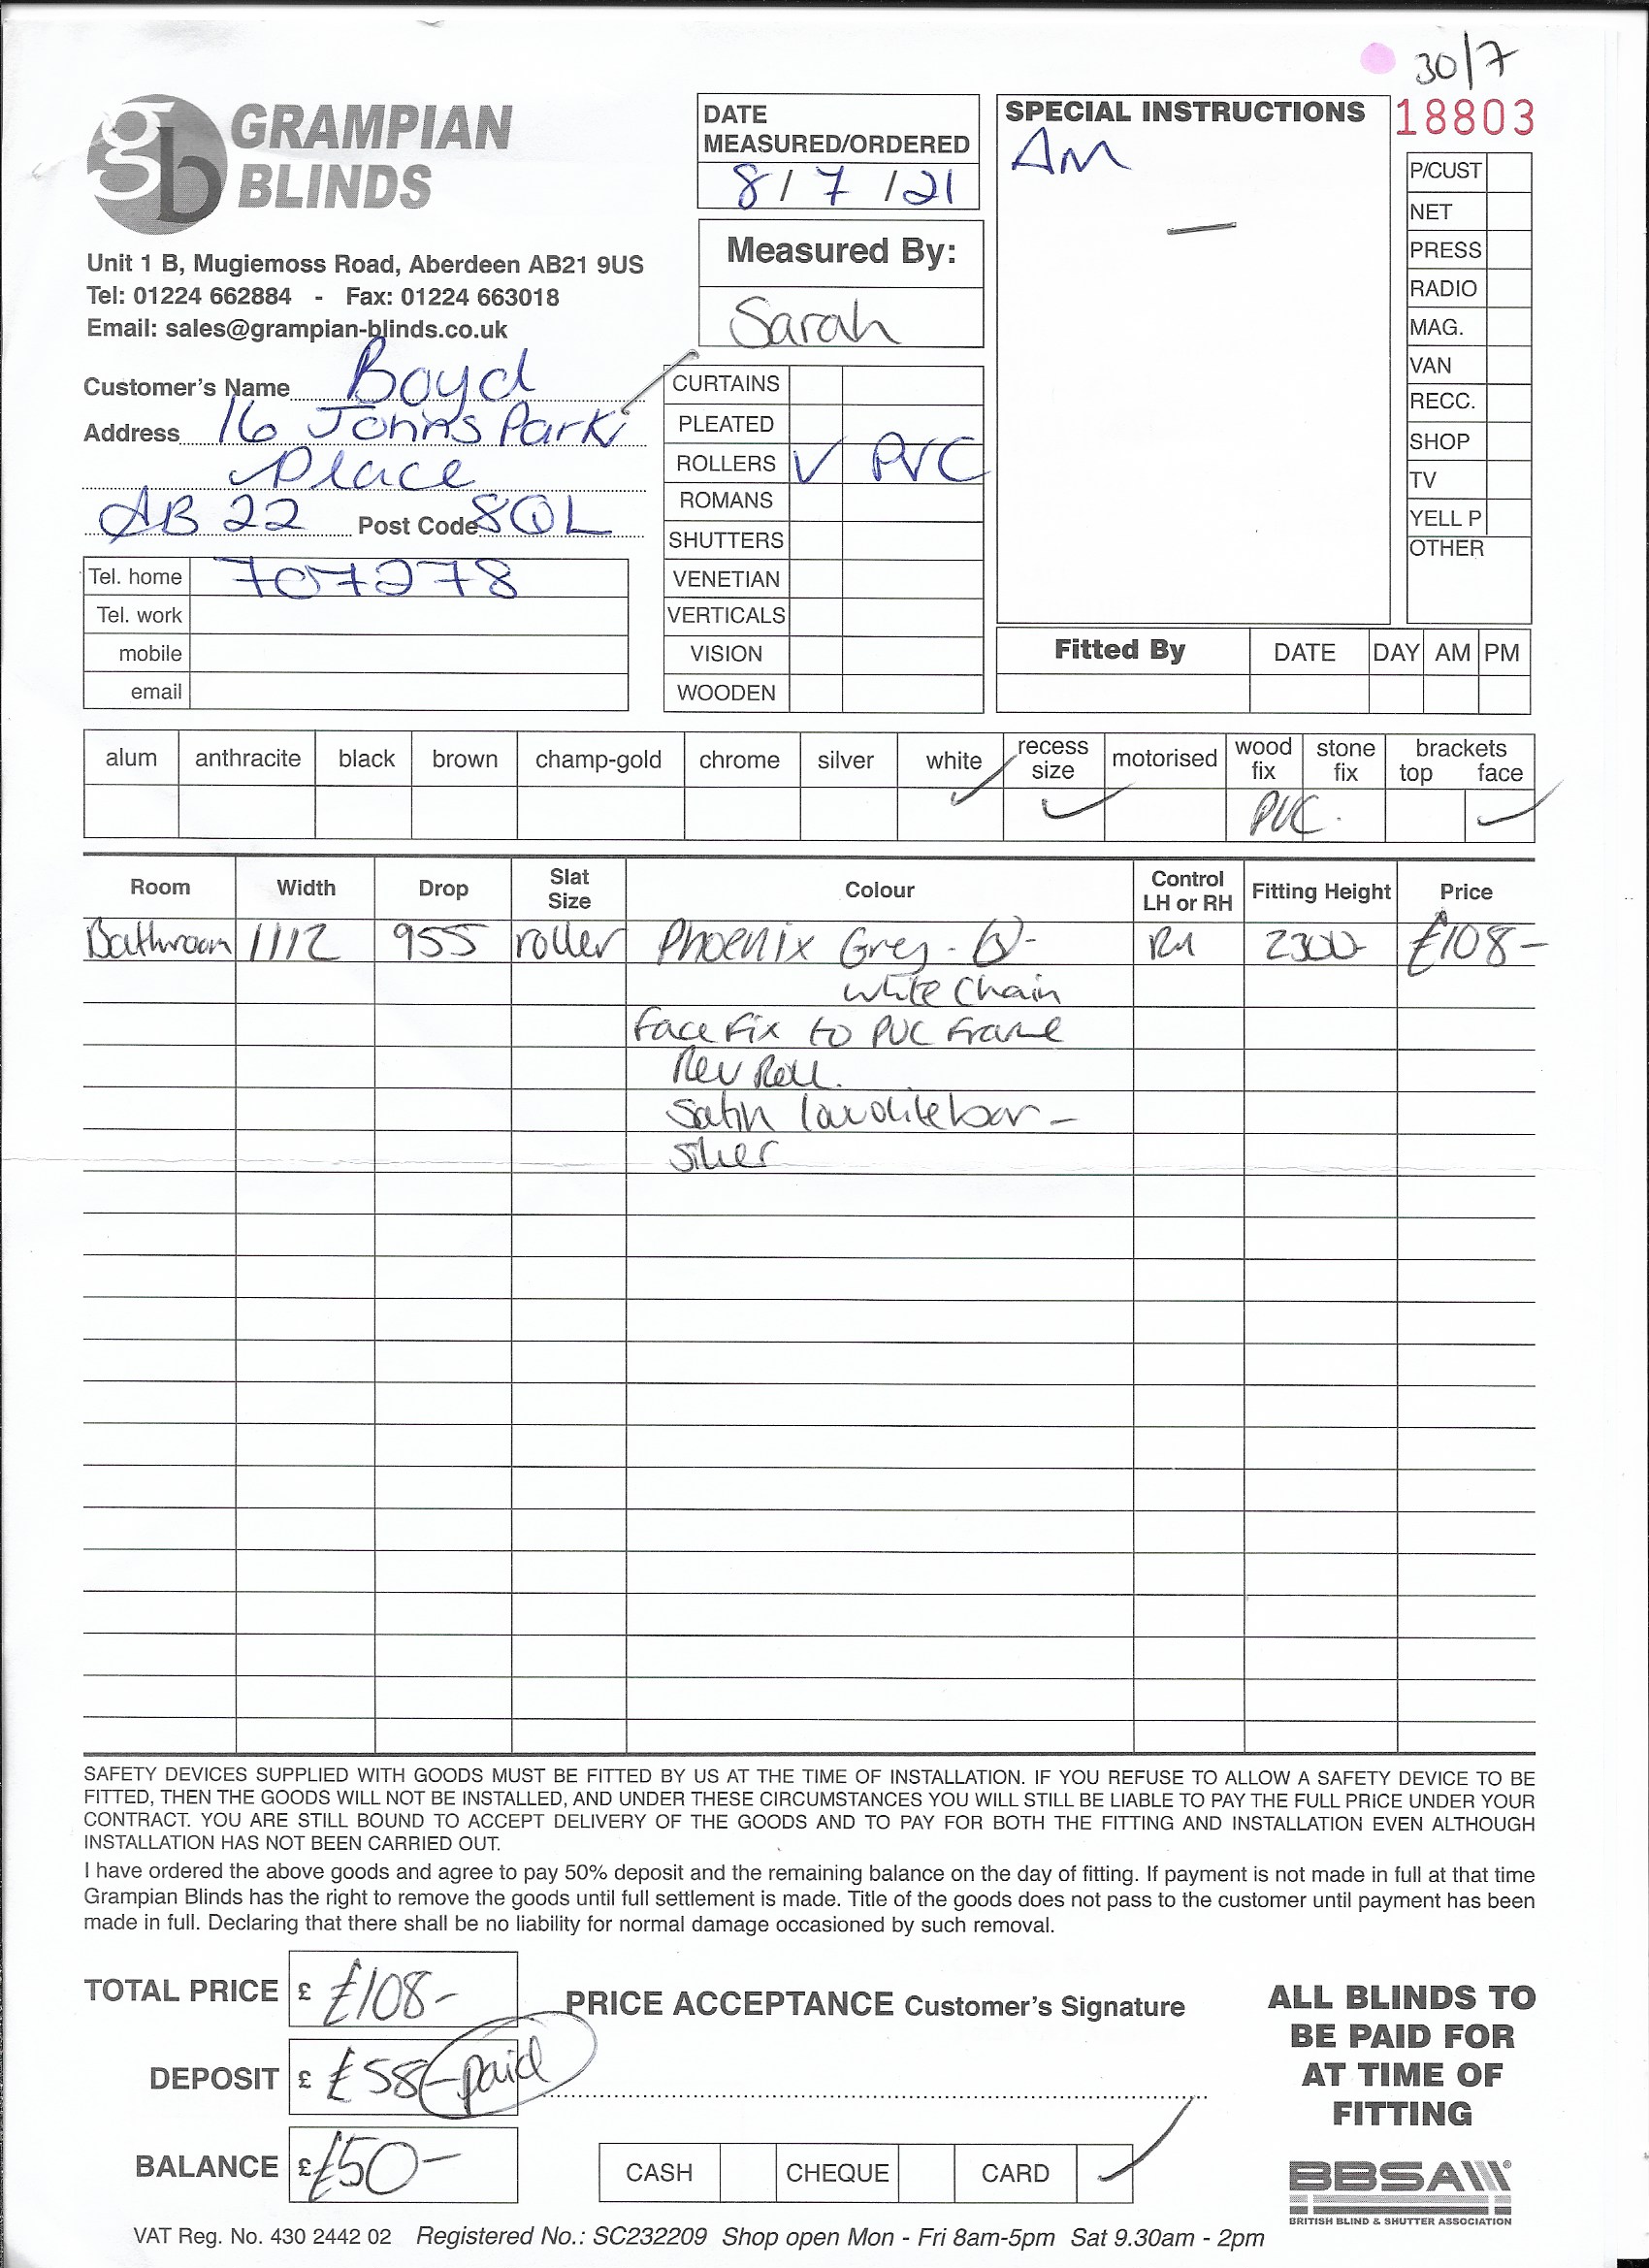 30/7
18803
gb GRAMPIAN
BLINDS
Unit 1 B, Mugiemoss Road, Aberdeen AB21 9US
Tel: 01224 662884 - Fax: 01224 663018
Email: sales@grampian-blinds.co.uk
Customer's Name Boyd
Address 16 Johns Park
Place
AB 22 Post Code 8QL
Tel. home 707278
Tel. work
mobile
email
DATE
MEASURED/ORDERED
8 / 7 / 21
Measured By:
Sarah
CURTAINS
PLEATED
ROLLERS ✓ PVC
ROMANS
SHUTTERS
VENETIAN
VERTICALS
VISION
WOODEN
SPECIAL INSTRUCTIONS
AM
P/CUST
NET
PRESS
RADIO
MAG.
VAN
RECC.
SHOP
TV
YELL P
OTHER
Fitted By DATE DAY AM PM
alum anthracite black brown champ-gold chrome silver white recess size motorised wood fix stone fix brackets top face
✓ ✓ PVC. ✓
Room Width Drop Slat Size Colour Control LH or RH Fitting Height Price
Bathroom 1112 955 roller Phoenix Grey - RH 2300 £108-
white chain
Face Fix to PVC Frame
Rev Roll.
Satin bar -
Silver
SAFETY DEVICES SUPPLIED WITH GOODS MUST BE FITTED BY US AT THE TIME OF INSTALLATION. IF YOU REFUSE TO ALLOW A SAFETY DEVICE TO BE
FITTED, THEN THE GOODS WILL NOT BE INSTALLED, AND UNDER THESE CIRCUMSTANCES YOU WILL STILL BE LIABLE TO PAY THE FULL PRICE UNDER YOUR
CONTRACT. YOU ARE STILL BOUND TO ACCEPT DELIVERY OF THE GOODS AND TO PAY FOR BOTH THE FITTING AND INSTALLATION EVEN ALTHOUGH
INSTALLATION HAS NOT BEEN CARRIED OUT.
I have ordered the above goods and agree to pay 50% deposit and the remaining balance on the day of fitting. If payment is not made in full at that time
Grampian Blinds has the right to remove the goods until full settlement is made. Title of the goods does not pass to the customer until payment has been
made in full. Declaring that there shall be no liability for normal damage occasioned by such removal.
TOTAL PRICE £ £108-
DEPOSIT £ £58- paid
BALANCE £ £50-
PRICE ACCEPTANCE Customer's Signature
CASH CHEQUE CARD ✓
ALL BLINDS TO
BE PAID FOR
AT TIME OF
FITTING
BBSA
BRITISH BLIND & SHUTTER ASSOCIATION
VAT Reg. No. 430 2442 02 Registered No.: SC232209 Shop open Mon - Fri 8am-5pm Sat 9.30am - 2pm